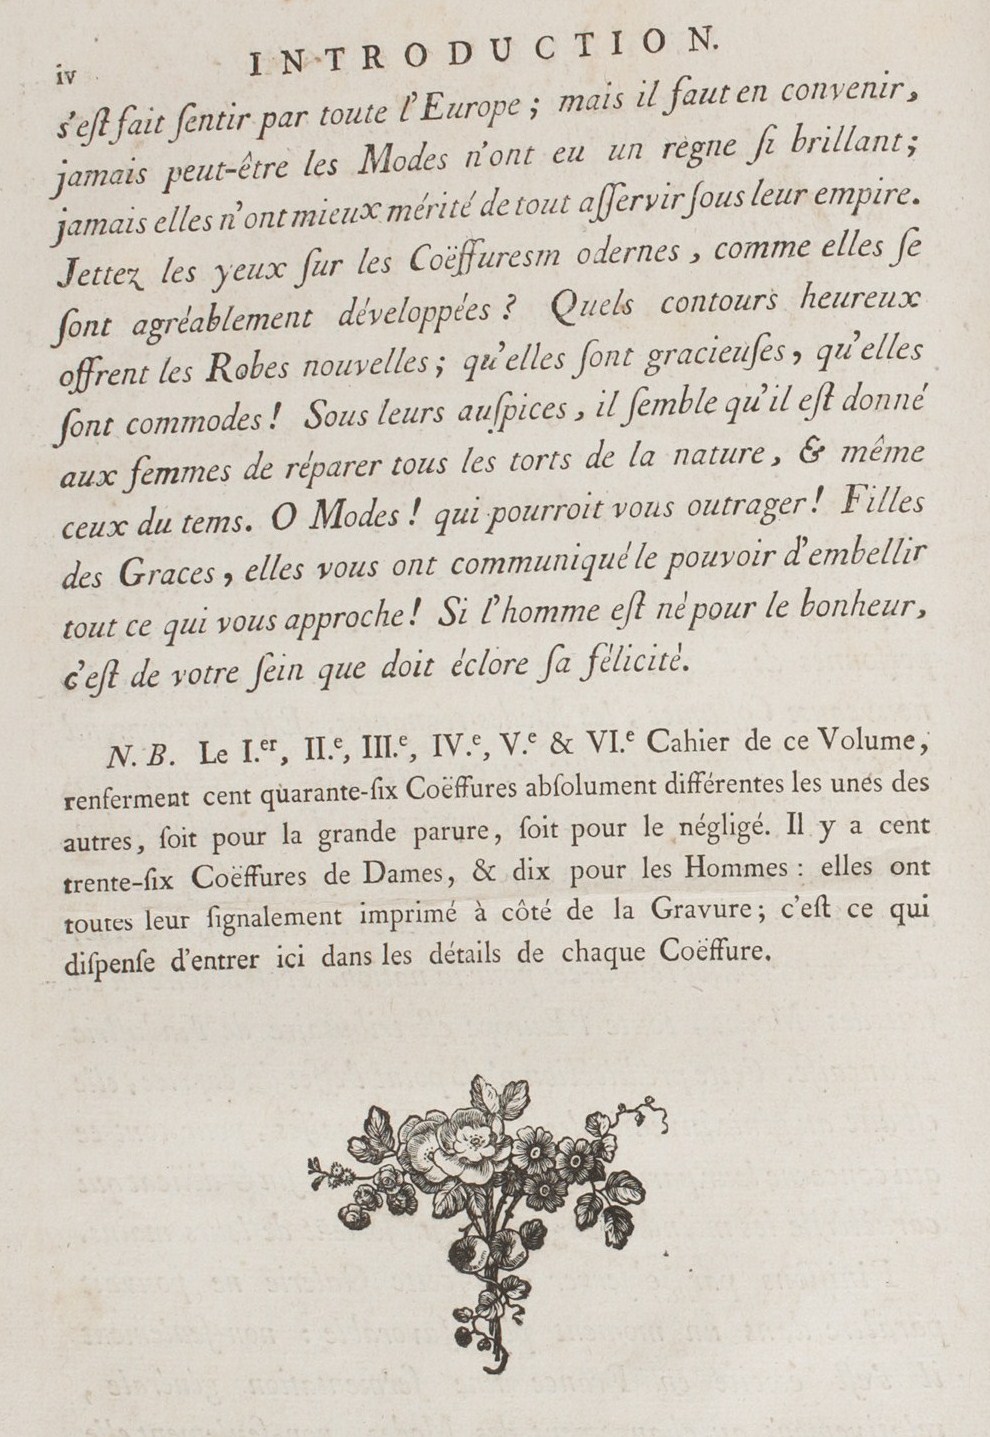 iv
INTRODUCTION.
s'eſt fait ſentir par toute l'Europe ; mais il faut en convenir,
jamais peut-être les Modes n'ont eu un règne ſi brillant ;
jamais elles n'ont mieux mérité de tout aſſervir ſous leur empire.
Jettez les yeux ſur les Coëffuresm odernes , comme elles ſe
ſont agréablement développées ? Quels contours heureux
offrent les Robes nouvelles ; qu'elles ſont gracieuſes , qu'elles
ſont commodes ! Sous leurs auſpices , il ſemble qu'il eſt donné
aux femmes de réparer tous les torts de la nature , & même
ceux du tems. O Modes ! qui pourroit vous outrager ! Filles
des Graces , elles vous ont communiqué le pouvoir d'embellir
tout ce qui vous approche ! Si l'homme eſt né pour le bonheur,
c'eſt de votre ſein que doit éclore ſa félicité.
N. B. Le I.er, II.e, III.e, IV.e, V.e & VI.e Cahier de ce Volume,
renferment cent quarante-ſix Coëffures abſolument différentes les unes des
autres, ſoit pour la grande parure, ſoit pour le négligé. Il y a cent
trente-ſix Coëffures de Dames, & dix pour les Hommes : elles ont
toutes leur ſignalement imprimé à côté de la Gravure ; c'eſt ce qui
diſpenſe d'entrer ici dans les détails de chaque Coëffure.